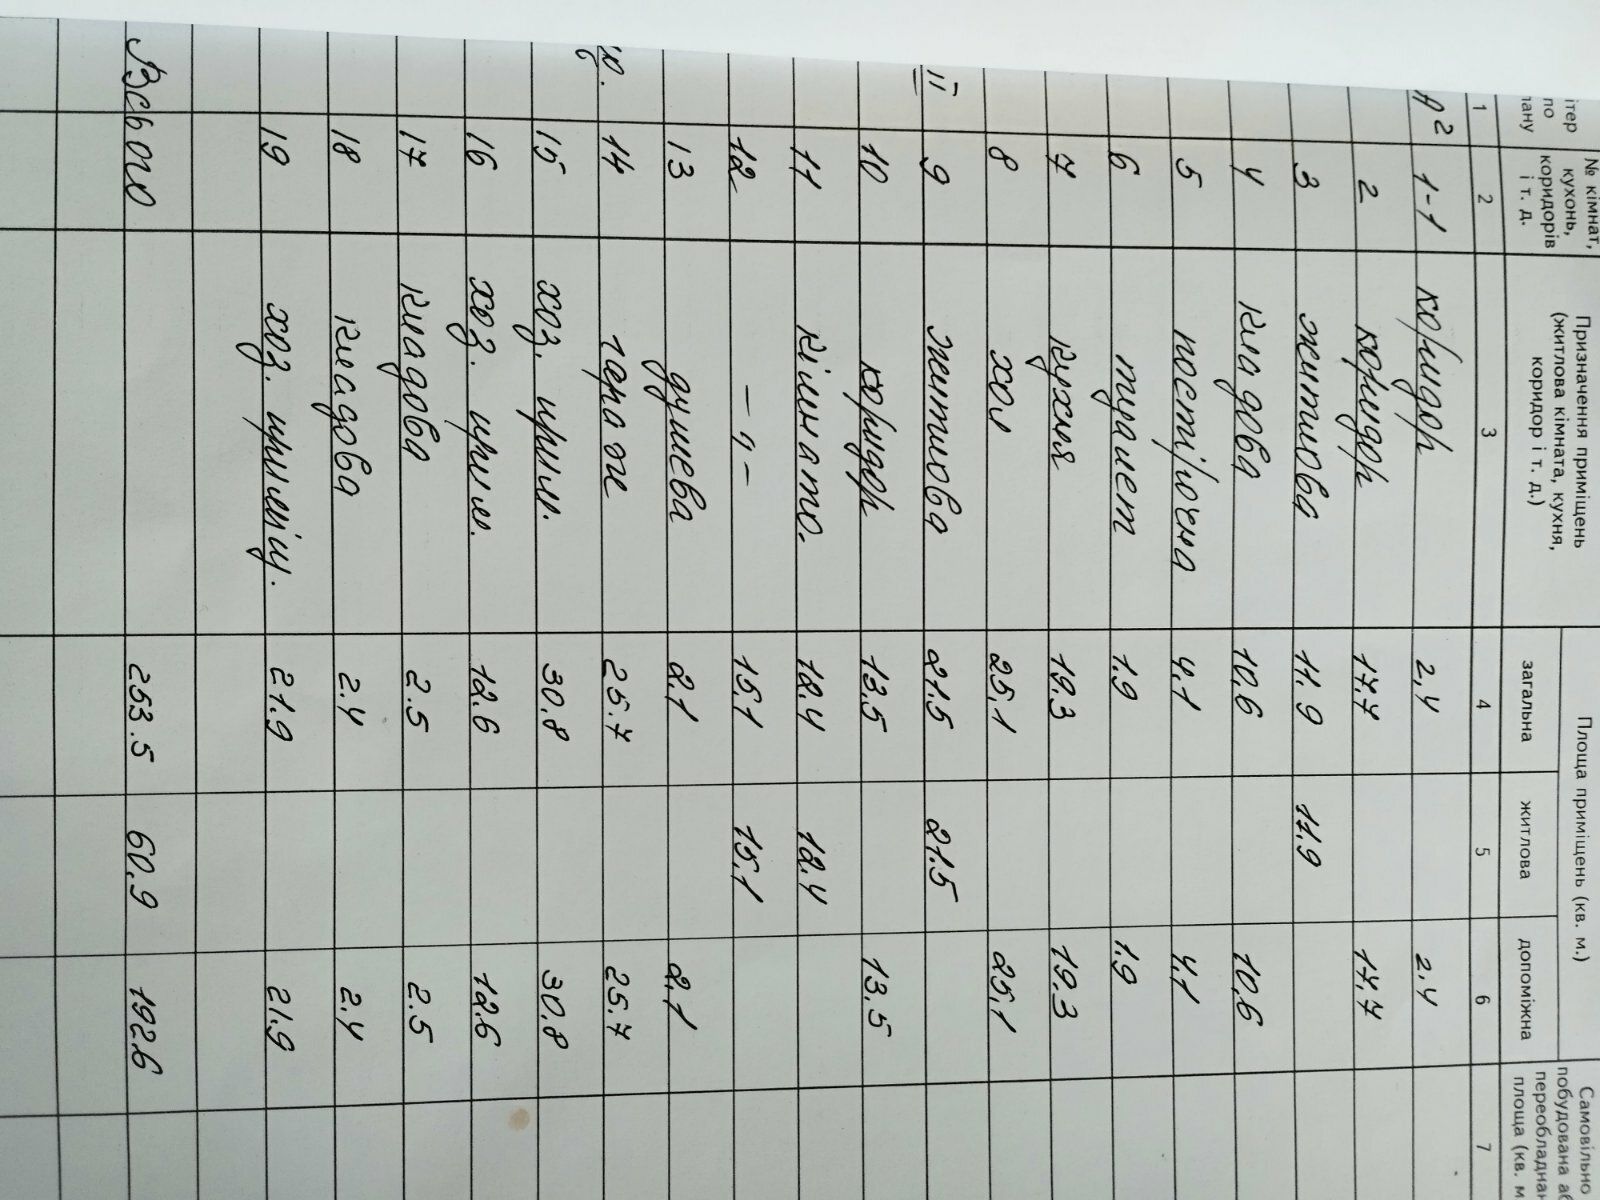 ітер по лану | № кімнат, кухонь, коридорів і т. д. | Призначення приміщень (житлова кімната, кухня, коридор і т. д.) | Площа приміщень (кв. м.) | Самовільно побудована аб переобладнан площа (кв. м
загальна | житлова | допоміжна
1 | 2 | 3 | 4 | 5 | 6 | 7
А² | 1-1 | коридор | 2,4 | | 2,4
2 | коридор | 17,7 | | 17,7
3 | житлова | 11.9 | 11,9
4 | кладова | 10,6 | | 10,6
5 | постірочна | 4,1 | | 4,1
6 | туалет | 1.9 | | 1.9
7 | кухня | 19.3 | | 19.3
8 | хол | 25,1 | | 25,1
ІІ | 9 | житлова | 21.5 | 21.5
10 | коридор | 13,5 | | 13,5
11 | кімната. | 12,4 | 12,4
12 | –„– | 15,1 | 15,1
13 | душева | 2,1 | | 2,1
14 | гараж | 25.7 | | 25.7
15 | хоз. прим. | 30,8 | | 30,8
16 | хоз. прим. | 12.6 | | 12.6
17 | кладова | 2.5 | | 2.5
18 | кладова | 2.4 | | 2.4
19 | хоз. приміщ. | 21.9 | | 21.9
Всього | 253.5 | 60,9 | 192.6